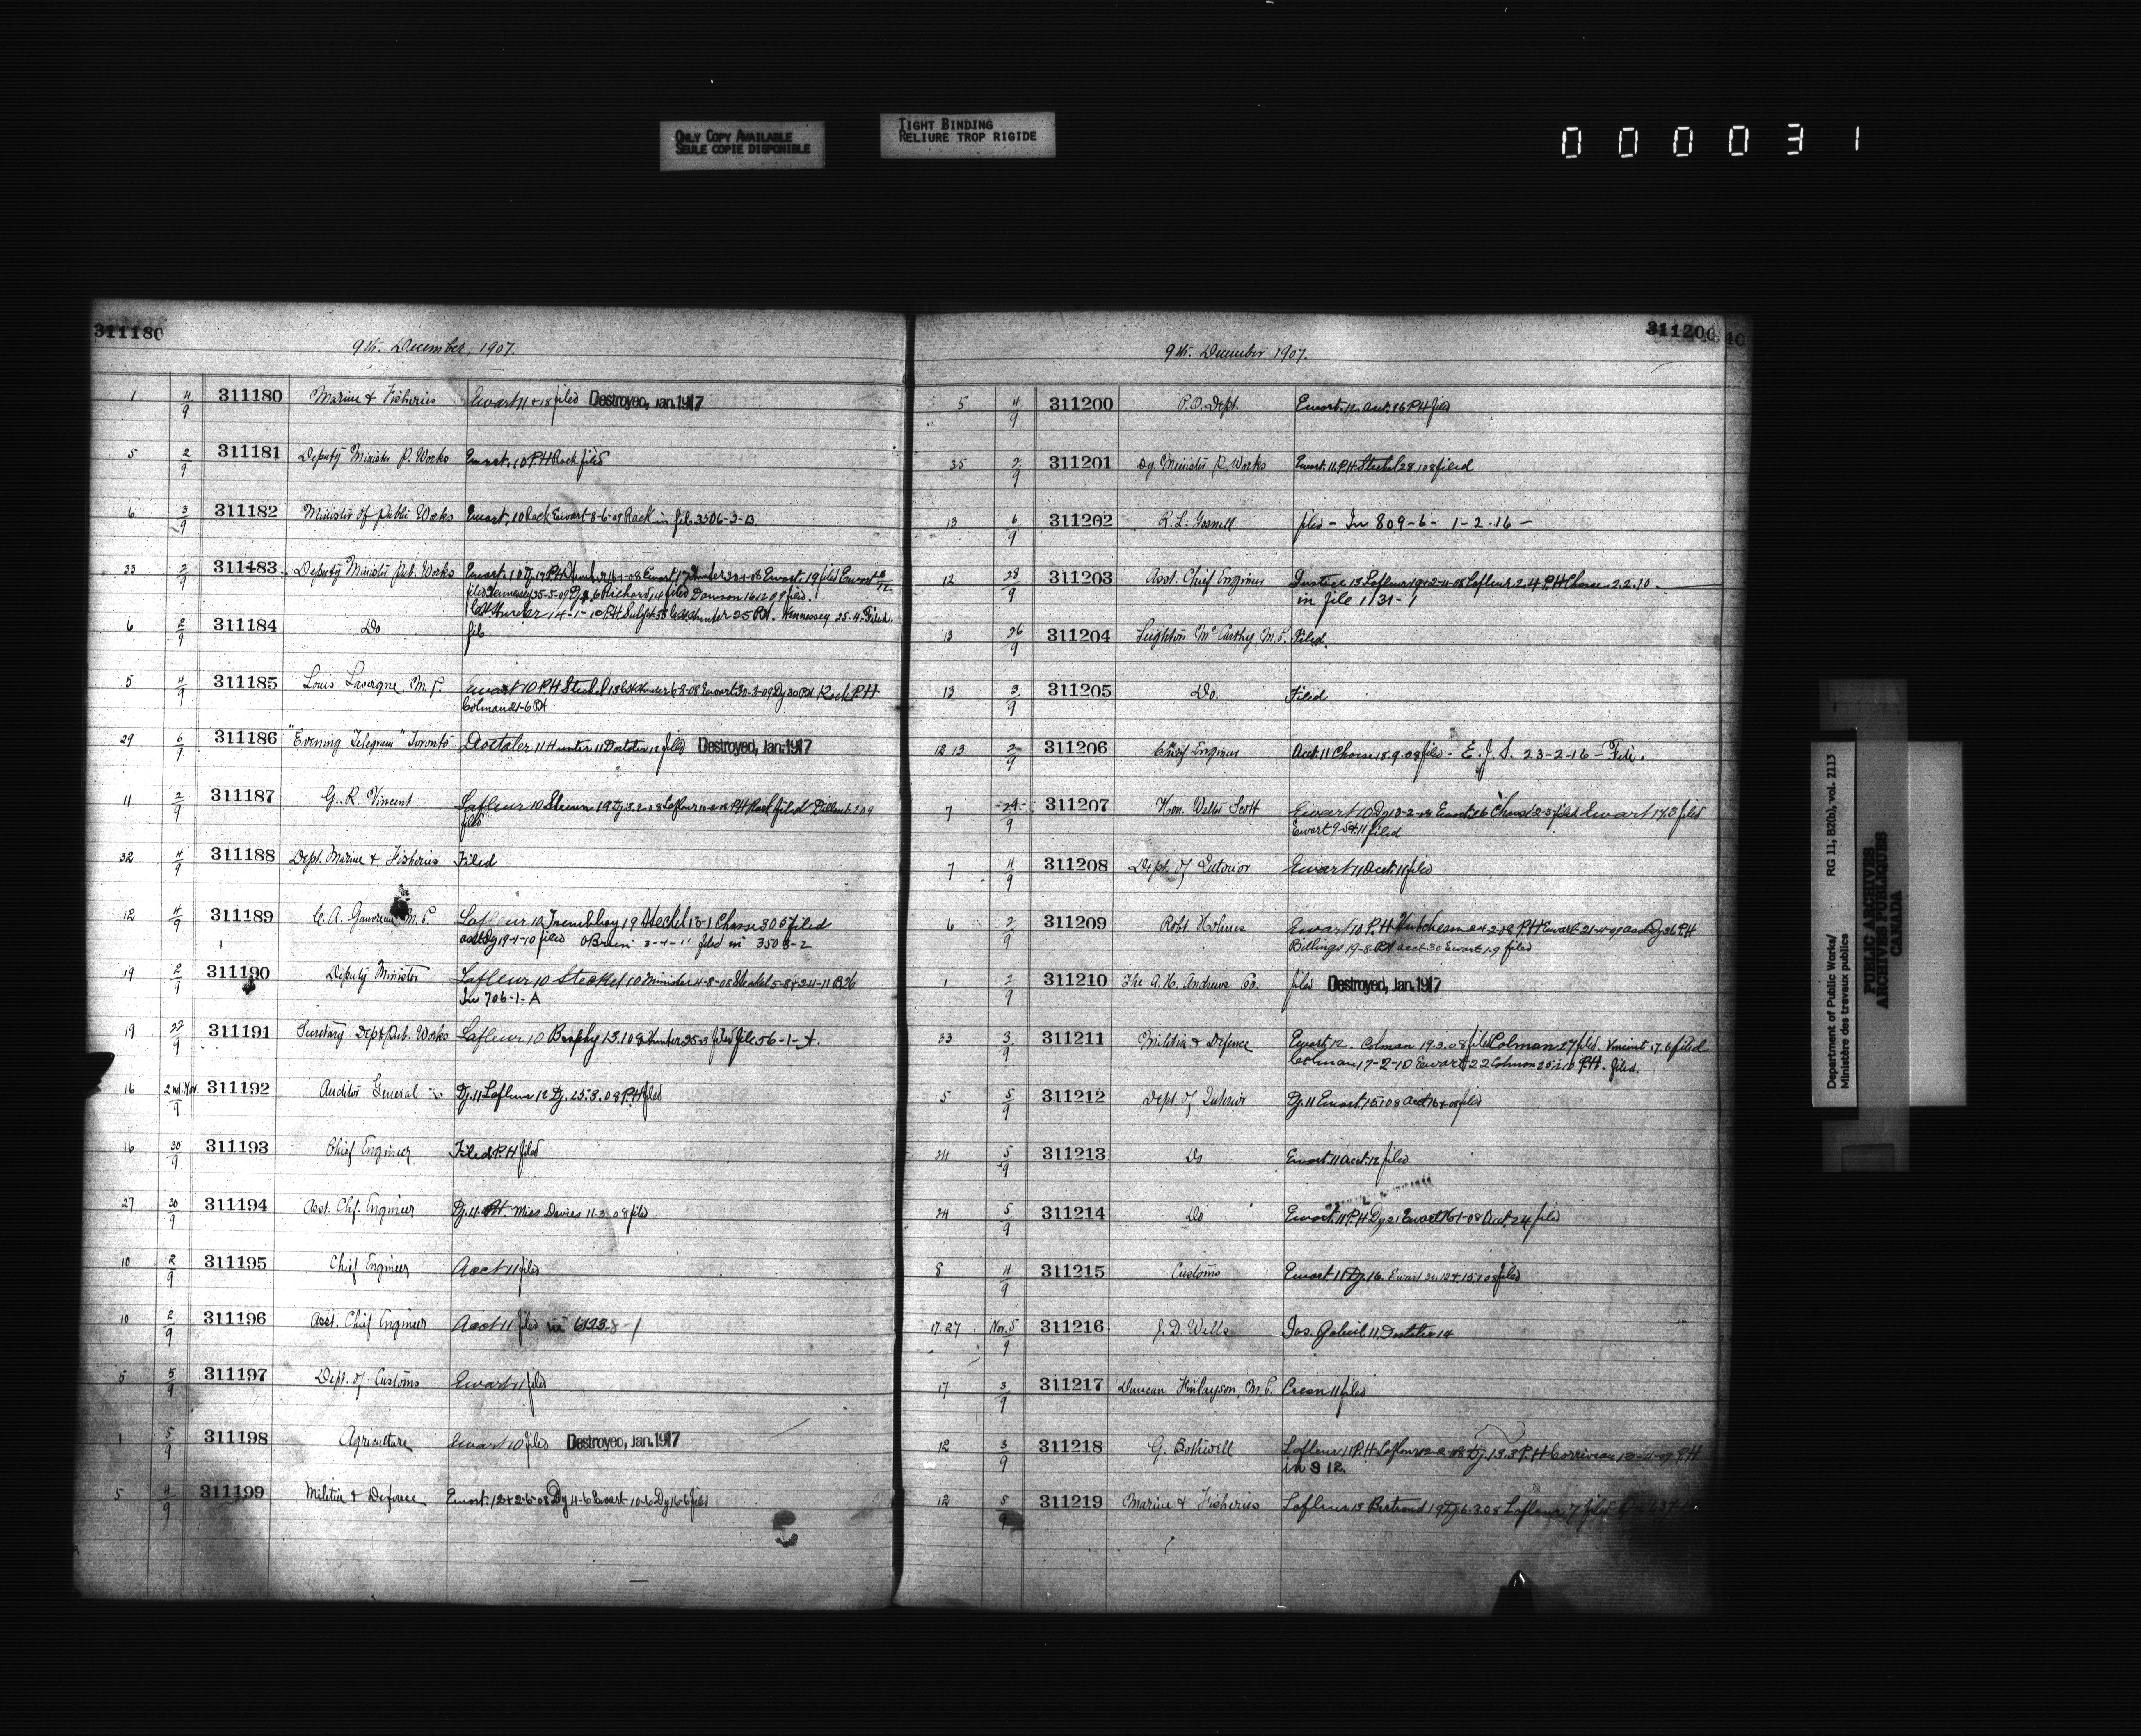 ONLY COPY AVAILABLE
SEULE COPIE DISPONIBLE
TIGHT BINDING
RELIURE TROP RIGIDE
000031
311180
9th. December, 1907.
1 4/9 311180 Marine & Fisheries Ewart 11 & 18 filed Destroyed, Jan. 1917
5 2/9 311181 Deputy Minister P. Works Ewart, 10 P.H. Rack filed
6 3/9 311182 Minister of Public Works Ewart, 10 Rack Ewart 8-6-09 Rack in file 3506-3-B.
33 2/9 311183 Deputy Minister Pub. Works
6 2/9 311184 Do file
5 4/9 311185 Louis Lavergne, M.P. Ewart 10 P.H. Steckel 13
Colman 21-6 P.H.
29 6/9 311186 "Evening Telegram" Toronto Dostaler 11 Hunter 11 Dostaler 12 filed Destroyed, Jan. 1917
11 2/9 311187 G. R. Vincent Lafleur 10
filed
32 4/9 311188 Dept. Marine & Fisheries Filed
12 4/9 311189 C. A. Gauvreau M.P. Lafleur 12 Tremblay 19 Steckel 13-1 Chasse 30 5 filed
19-1-10 filed O'Brien 3-4-11 filed in 3508-2
19 2/9 311190 Deputy Minister Lafleur 10 Steckel 10 Minister 4-8-08 Steckel 5-8 & 24-11
In 706-1-A
19 27/9 311191 Secretary Dept Pub. Works Lafleur 10 Brophy 13.1.08 Hunter 25-3 filed file 56-1-A.
16 2nd. Nov./9 311192 Auditor General Dy. 11 Lafleur 12 Dy. 25.3.08 P.H. filed
16 30/9 311193 Chief Engineer Filed P.H. filed
27 30/9 311194 Asst. Chf. Engineer Dy. 11. P.H. Miss Davies 11.3.08 filed
10 2/9 311195 Chief Engineer Acct 11 filed
10 2/9 311196 Asst. Chief Engineer Acct 11 filed in 6123-8-1
5 5/9 311197 Dept. of Customs Ewart 11 filed
1 5/9 311198 Agriculture Ewart 10 filed Destroyed, Jan. 1917
5 4/9 311199 Militia & Defence Ewart. 12 & 2-6-08 Dy 4-6 Ewart 10-6 Dy 16-6 filed
311200 40
9th. December 1907.
5 4/9 311200 P.O. Dept. Ewart. 12 acct. 16 P.H. filed
35 2/9 311201 Dy. Minister P. Works Ewart. 11. P.H. Steckel 28.1.08 filed
13 6/9 311202 R. L. filed - In 809-6- 1-2-16 -
12 28/9 311203 Asst. Chief Engineer Justice 13 Lafleur Lafleur 2.4 P.H. Chasse 2.2.10.
in file 1131-1
13 26/9 311204 Leighton McCarthy, M.P. Filed.
13 3/9 311205 Do. Filed
12 13 2/9 311206 Chief Engineer Acct. 11 Chasse 18.9.08 filed - E. J. S. 23-2-16 - File.
7 29/9 311207 Hon. Walter Scott Ewart 10 Dy 13-2-08 Ewart 26 Chasse 2-3 filed Ewart 17.3 filed
Ewart 9-5 & 11 filed
7 4/9 311208 Dept. of Interior Ewart 11 Acct. 11 filed
6 2/9 311209 Robt Holmes Ewart 10 P.H. Hutcheson 24-2-08 P.H. Ewart 21-4-09 Dy 26 P.H.
Billings 19-8 P.H. acct 30 Ewart 1-9 filed
1 2/9 311210 The A. H. Andrews Co. filed Destroyed, Jan. 1917
33 3/9 311211 Militia & Defence Ewart, 12. Colman 19.3.08 filed Colman 27 filed. Vincent 17.6 filed
Colman 17-2-10 Ewart 22 Colman P.H. filed.
5 5/9 311212 Dept of Interior Dy. 11 Ewart, 15.1.08 Acct. filed
24 5/9 311213 Do Ewart 11 Acct. 12 filed
24 5/9 311214 Do Ewart. 11 P.H. Dy 21 Ewart 16-1-08 Acct. 24 filed
8 4/9 311215 Customs Ewart 11 Dy. 16. Ewart filed
17.27 Nov. 5/9 311216 J. D. Wells Jas. 11, Dostaler 14
17 3/9 311217 Duncan Finlayson, M.P. Crean 11 filed
12 3/9 311218 G. Bothwell Lafleur 11 P.H. Lafleur 12-2-08 Dy. 13.3 P.H. Corriveau P.H.
in 912
12 5/9 311219 Marine & Fisheries Lafleur 13 Bertrand 19 Dy. 6.3.08 Lafleur 7 filed
Department of Public Works/ RG 11, B2(b), vol. 2113
Ministère des travaux publics
PUBLIC ARCHIVES
ARCHIVES PUBLIQUES
CANADA